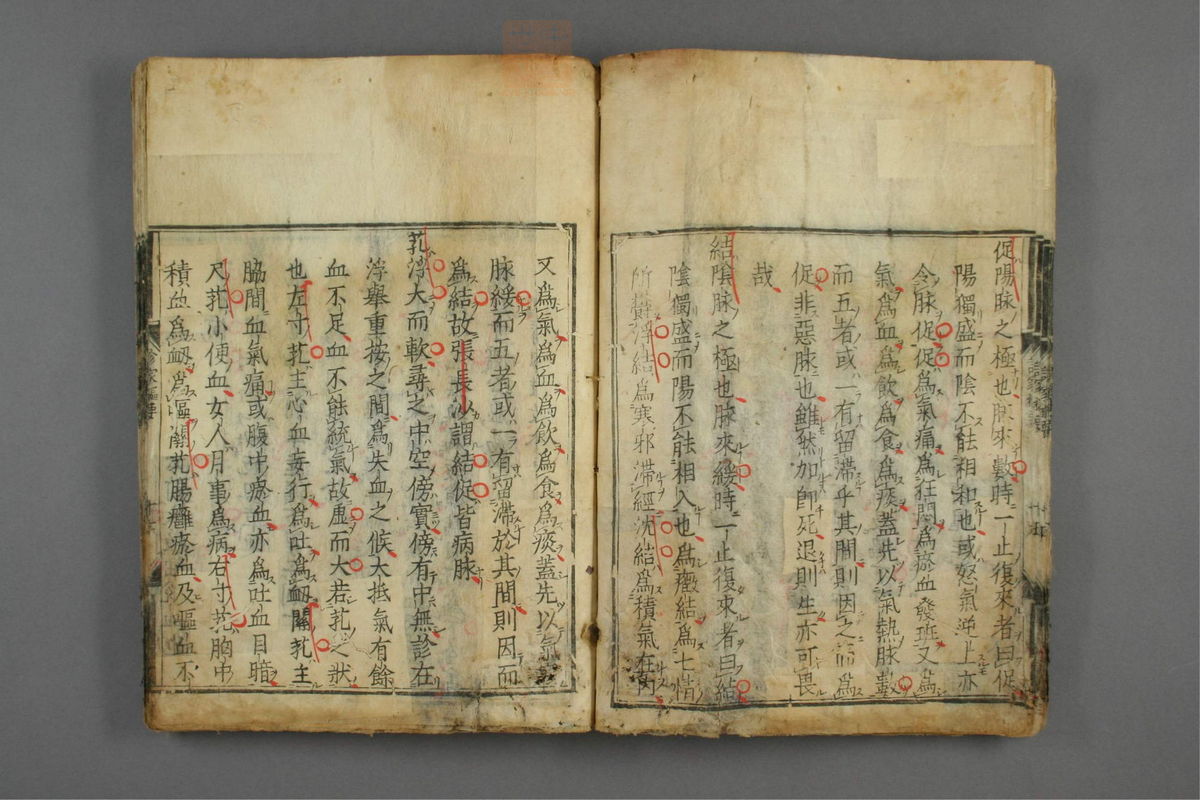 促陽脉之極也脉來數時一止復來者曰促
陽獨盛而陰不能相和也或怒氣逆上亦
令脉促促為氣痛為狂悶為瘀血發斑又為
氣為血為飲為食為痰蓋先以氣熱脉數
而五者或一有留滯乎其間則因之而為
促非惡脉也雖然加即死退則生亦可畏
哉
結陰脉之極也脉來緩時一止復來者曰結
陰獨盛而陽不能相入也為癥結為七情
所鬱浮結為寒邪滯經沈結為積氣在内
又為氣為血為飲為食為痰蓋先以氣
脉緩而五者或一有留滯於其間則因而
為結故張長沙謂結促皆病脉
芤浮大而軟尋之中空傍實傍有中無診在
浮舉重按之間為失血之候大抵氣有餘
血不足血不能統氣故虚而大若芤之狀
也左寸芤主心血妄行為吐為衂關芤主
脇間血氣痛或腹中瘀血亦為吐血目暗
尺芤小便血女人月事為病右寸芤胸中
積血為衂為嘔關芤腸癰瘀血及嘔血不